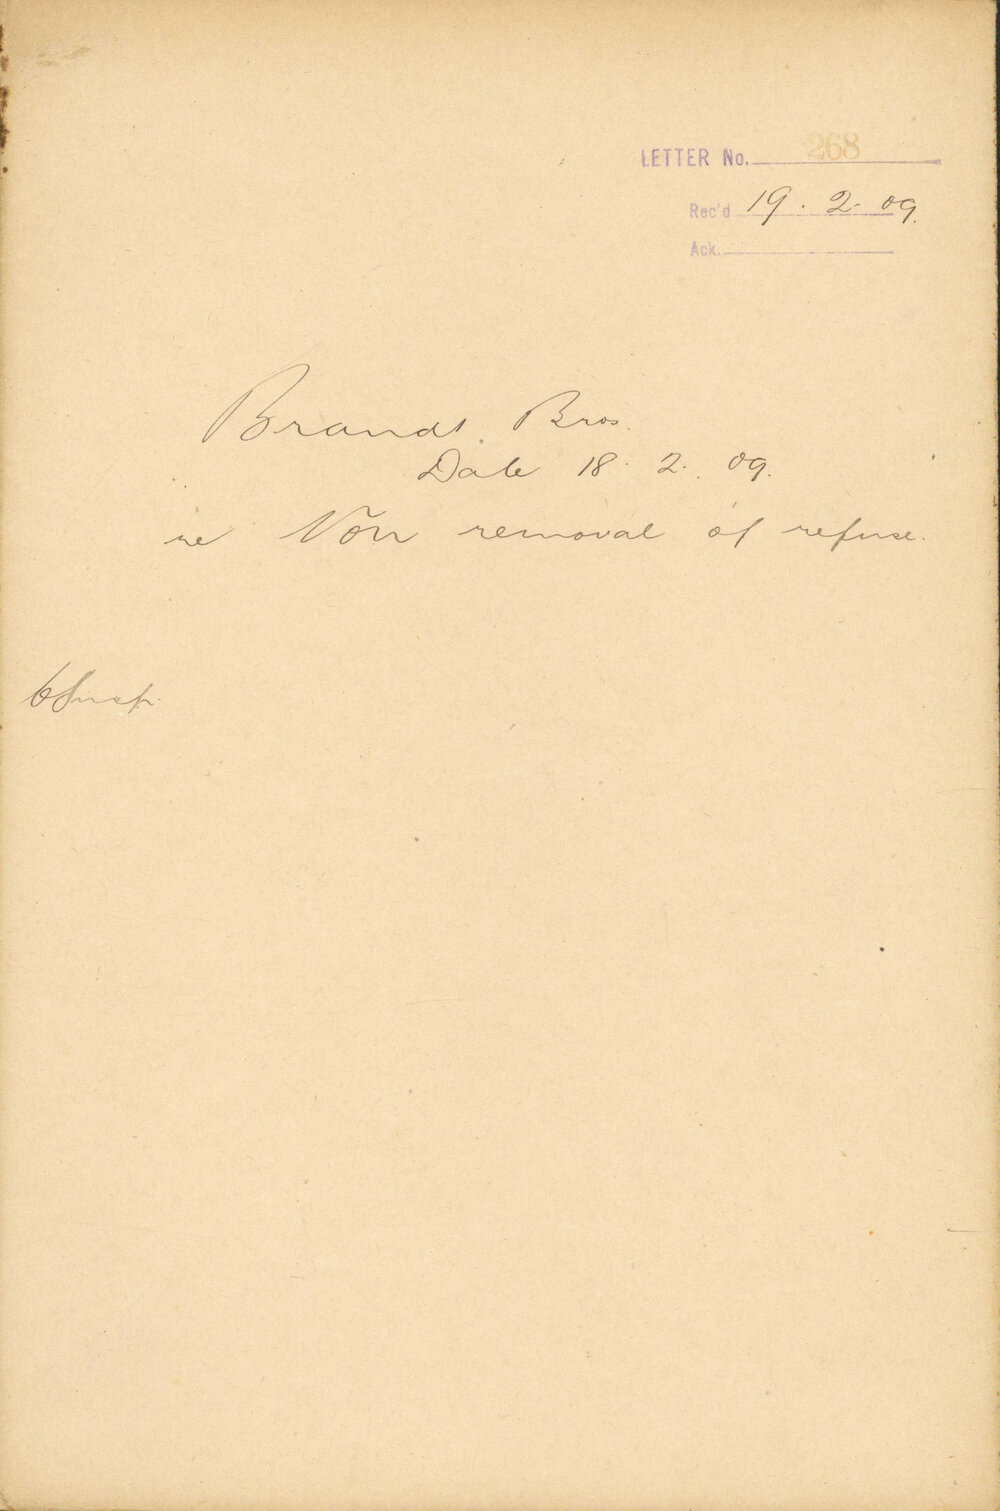 LETTER No. 268
Rec'd 19. 2. 09.
Ack.
Brandt Bros.
Date 18. 2. 09.
re Non removal of refuse.
Insp.